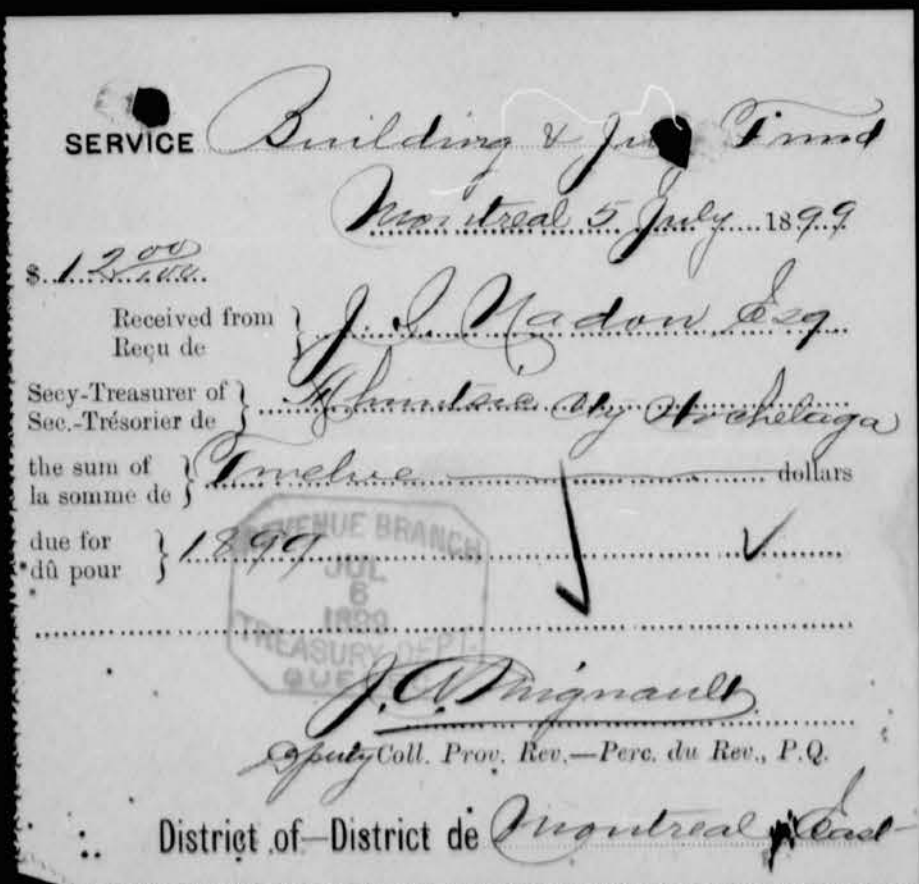 SERVICE Building & Jury Fund
Montreal 5 July 1899
$ 12 00/100
Received from
Reçu de
J. I. Nadon Esq
Secy-Treasurer of
Sec.-Trésorier de
Ahuntsic Cty Hochelaga
the sum of
la somme de
Twelve dollars
due for
dû pour
1899
REVENUE BRANCH
JUL
6
1899
TREASURY DEPT.
QUE
J. A. Mignault
Deputy Coll. Prov. Rev.—Perc. du Rev., P.Q.
District of—District de Montreal East